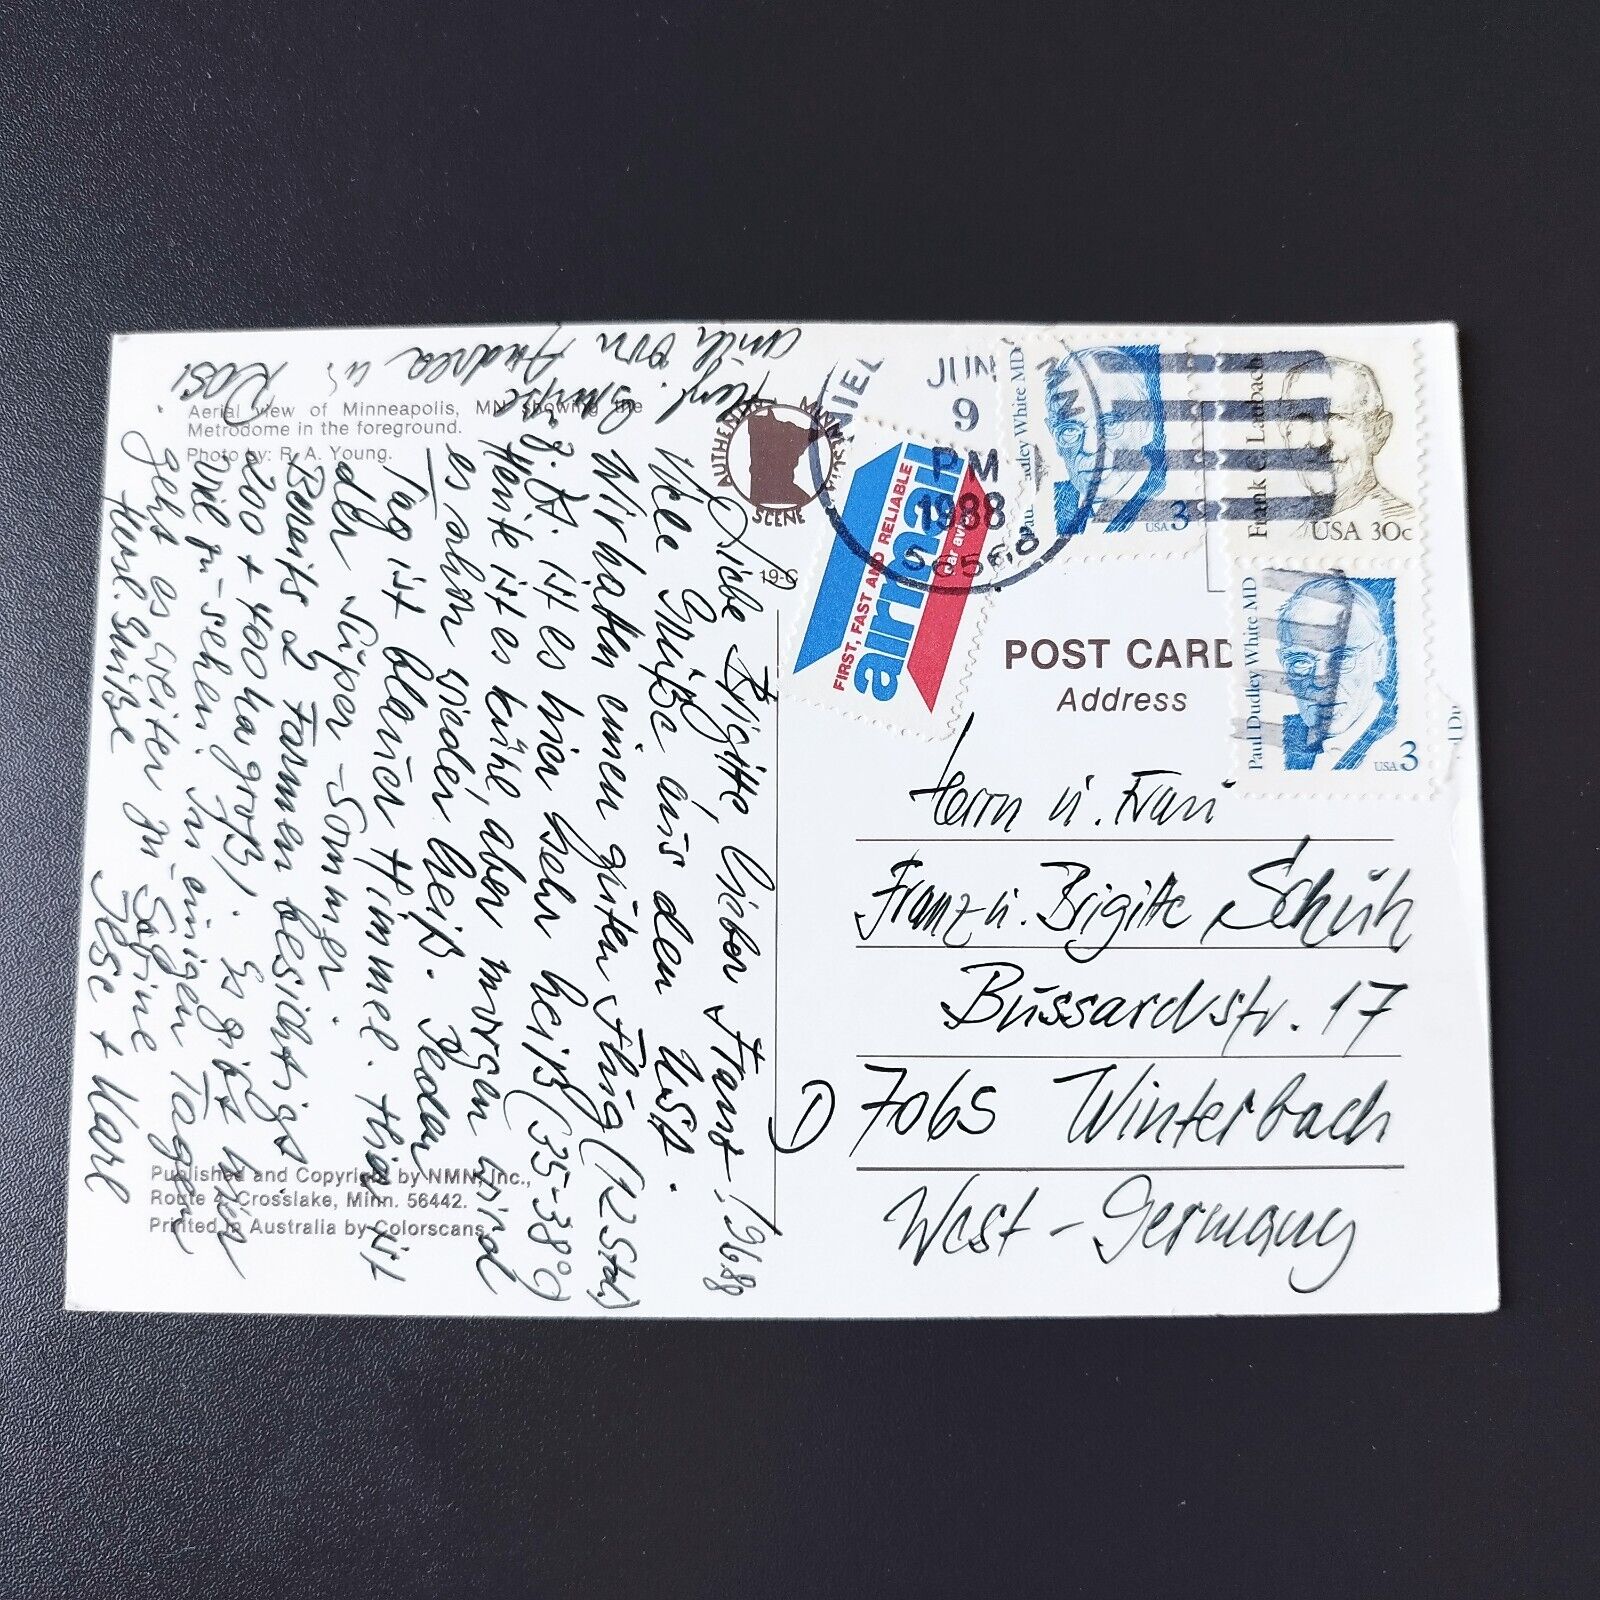 Aerial view of Minneapolis, MN showing the
Metrodome in the foreground.
Photo by: R. A. Young.
AUTHENTIC MINNESOTA
SCENE
19-C
Liebe Brigitte, lieber Franz, 9.6.88
Viele Grüße aus den USA.
Wir hatten einen guten Flug (12 Std.)
z.Zt. ist es hier sehr heiß (35-38°)
Heute ist es kühl, aber morgen wird
es schon wieder heiß. Jeden
Tag ist blauer Himmel. Hier ist
der Super-Sommer.
Bereits 2 Farmen besichtigt
200 + 400 ha groß). Es gibt hier
viel zu sehen. In einigen Tagen
geht es weiter zu Sabine
Herzl. Grüße Ilse + Karl
Herzl. Grüße
auch von Andrea u. Rosi
Published and Copyright by NMN, Inc.,
Route 4, Crosslake, Minn. 56442.
Printed in Australia by Colorscans
JUN
9
PM
1988
MN
FIRST, FAST AND RELIABLE
airmail
par avion
Paul Dudley White MD
USA 3
Frank C. Laubach
USA 30c
Paul Dudley White MD
USA 3
POST CARD
Address
Herrn u. Frau
Franz u. Brigitte Schuh
Bussardstr. 17
D 7065 Winterbach
West-Germany